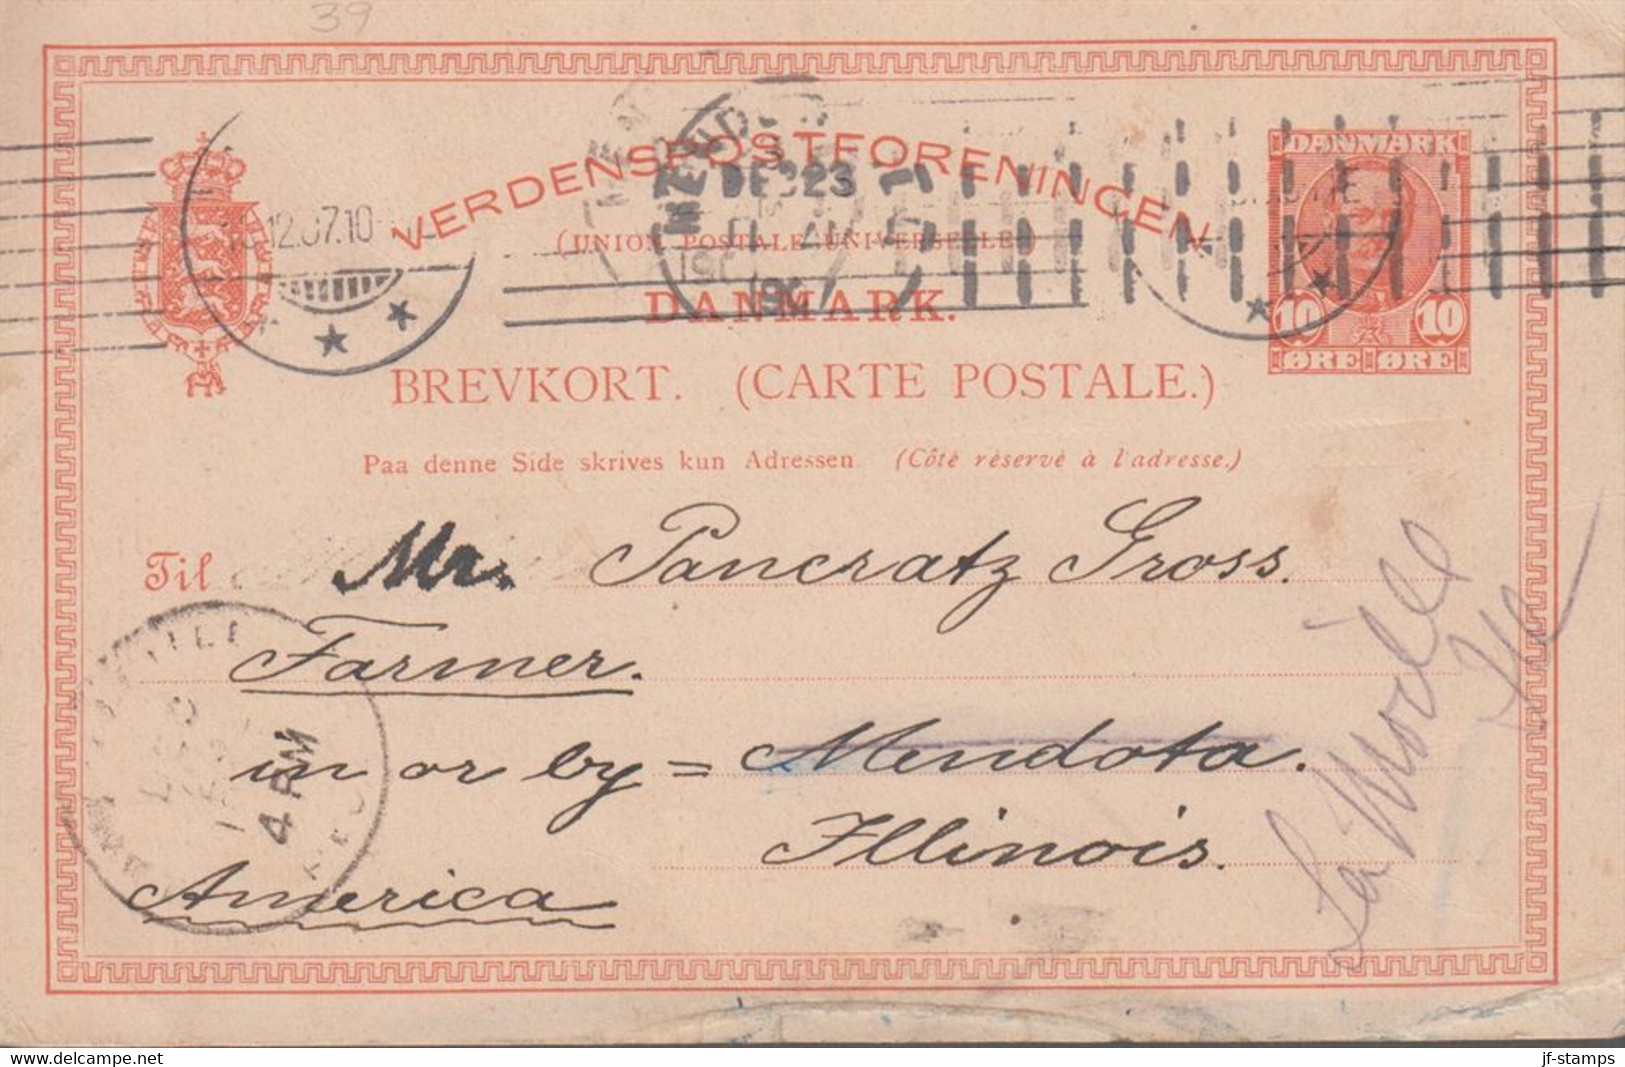 39
VERDENSPOSTFORENINGEN
(UNION POSTALE UNIVERSELLE)
DANMARK.
DANMARK
10 10
ØRE ØRE
12.07.10
DEC 23
BREVKORT. (CARTE POSTALE.)
Paa denne Side skrives kun Adressen. (Côté réservé à l'adresse.)
Til Mr. Pancratz Gross.
Farmer.
in or by = Mendota.
Illinois.
America
4 PM
La Moille
Ill
https://www.delcampe.net
jf-stamps